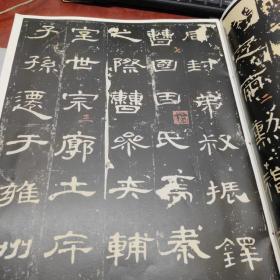 同封弟叔振鐸
曹國因氏焉秦
之際曹參夾輔
室世宗廓土斥
子孫遷于雍州